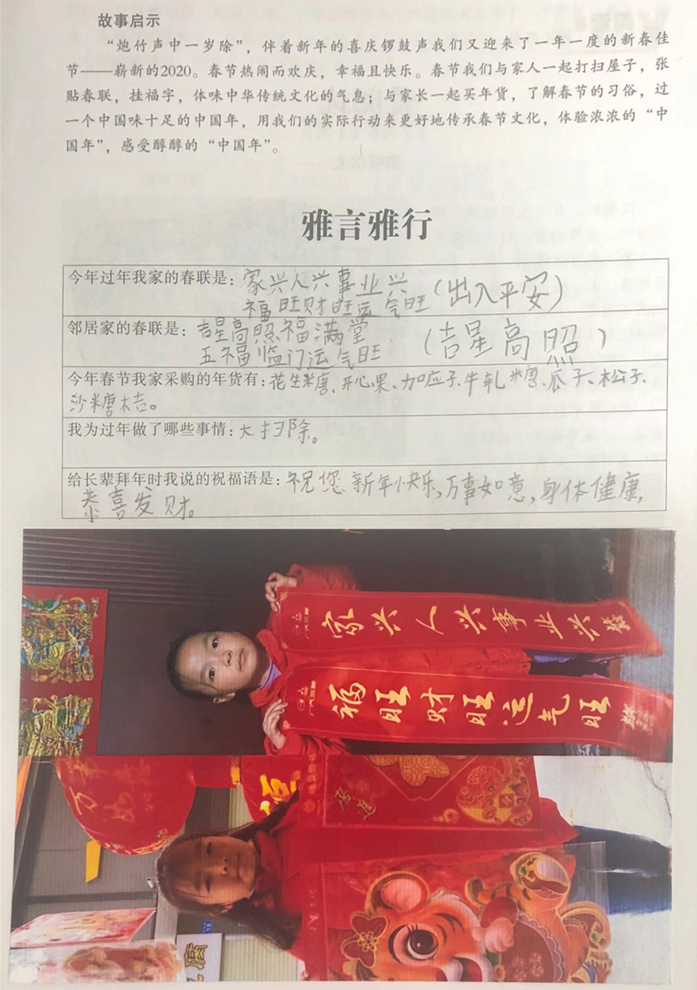 故事启示
“炮竹声中一岁除”，伴着新年的喜庆锣鼓声我们又迎来了一年一度的新春佳
节——崭新的2020。春节热闹而欢庆，幸福且快乐。春节我们与家人一起打扫屋子，张
贴春联，挂福字，体味中华传统文化的气息；与家长一起买年货，了解春节的习俗，过
一个中国味十足的中国年，用我们的实际行动来更好地传承春节文化，体验浓浓的“中
国年”，感受醇醇的“中国年”。
雅言雅行
今年过年我家的春联是：家兴人兴事业兴（出入平安）
福旺财旺运气旺
邻居家的春联是：吉星高照福满堂（吉星高照）
五福临门运气旺
今年春节我家采购的年货有：花生糖、开心果、加应子、牛轧糖、瓜子、松子、
沙糖桔。
我为过年做了哪些事情：大扫除。
给长辈拜年时我说的祝福语是：祝您新年快乐，万事如意，身体健康，
恭喜发财。
家兴人兴事业兴
福旺财旺运气旺